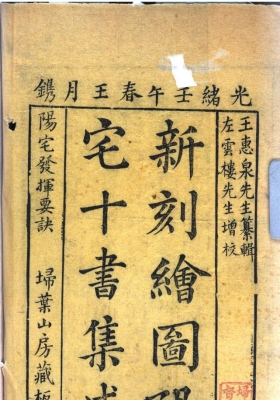 光緒壬午春王月鐫
王惠泉先生纂輯
左雲樓先生增校
新刻繪圖陽
宅十書集成
陽宅發揮要訣
埽葉山房藏板